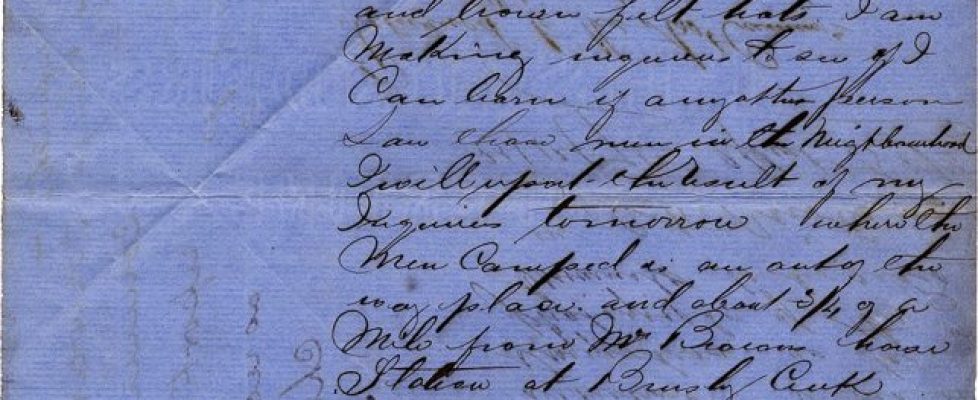 and brown felt hats I am
Making inquiries to see if I
Can learn if any other person
Saw those men in the Neighbourhood
I will report the result of my
Inquiries tomorrow where the
Men Camped is an out of the
way place. and about 3/4 of a
Mile from Mr Browns house
Station at Brushy Creek